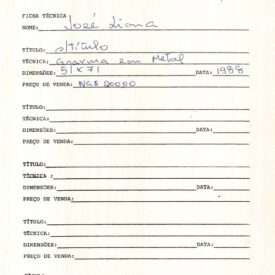 FICHA TÉCNICA :
NOME: José Lima
TÍTULO: s/Título
TÉCNICA: Gravura em Metal
DIMENSÕES: 51 x 71 DATA: 1988
PREÇO DE VENDA: NCz$ 20000
TÍTULO:
TÉCNICA:
DIMENSÕES: DATA:
PREÇO DE VENDA:
TÍTULO:
TÉCNICA :
DIMENSÕES: DATA:
PREÇO DE VENDA:
TÍTULO:
TÉCNICA:
DIMENSÕES: DATA:
PREÇO DE VENDA: